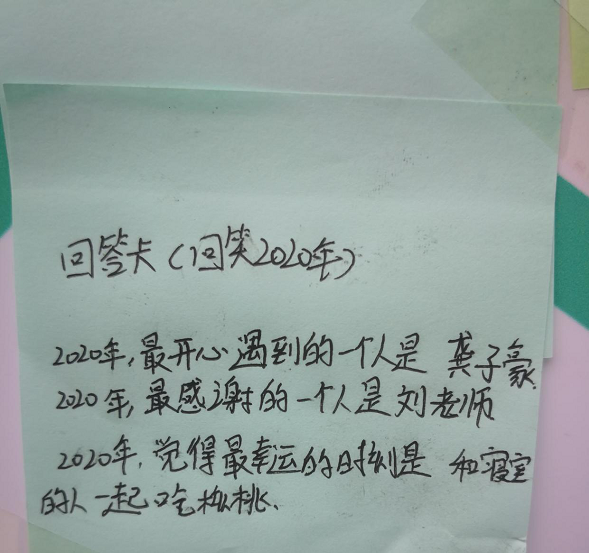 回答卡(回笑2020年)
2020年,最开心遇到的一个人是 龚子豪.
2020年,最感谢的一个人是刘老师
2020年,觉得最幸运的时刻是 和寝室
的人一起吃桃.